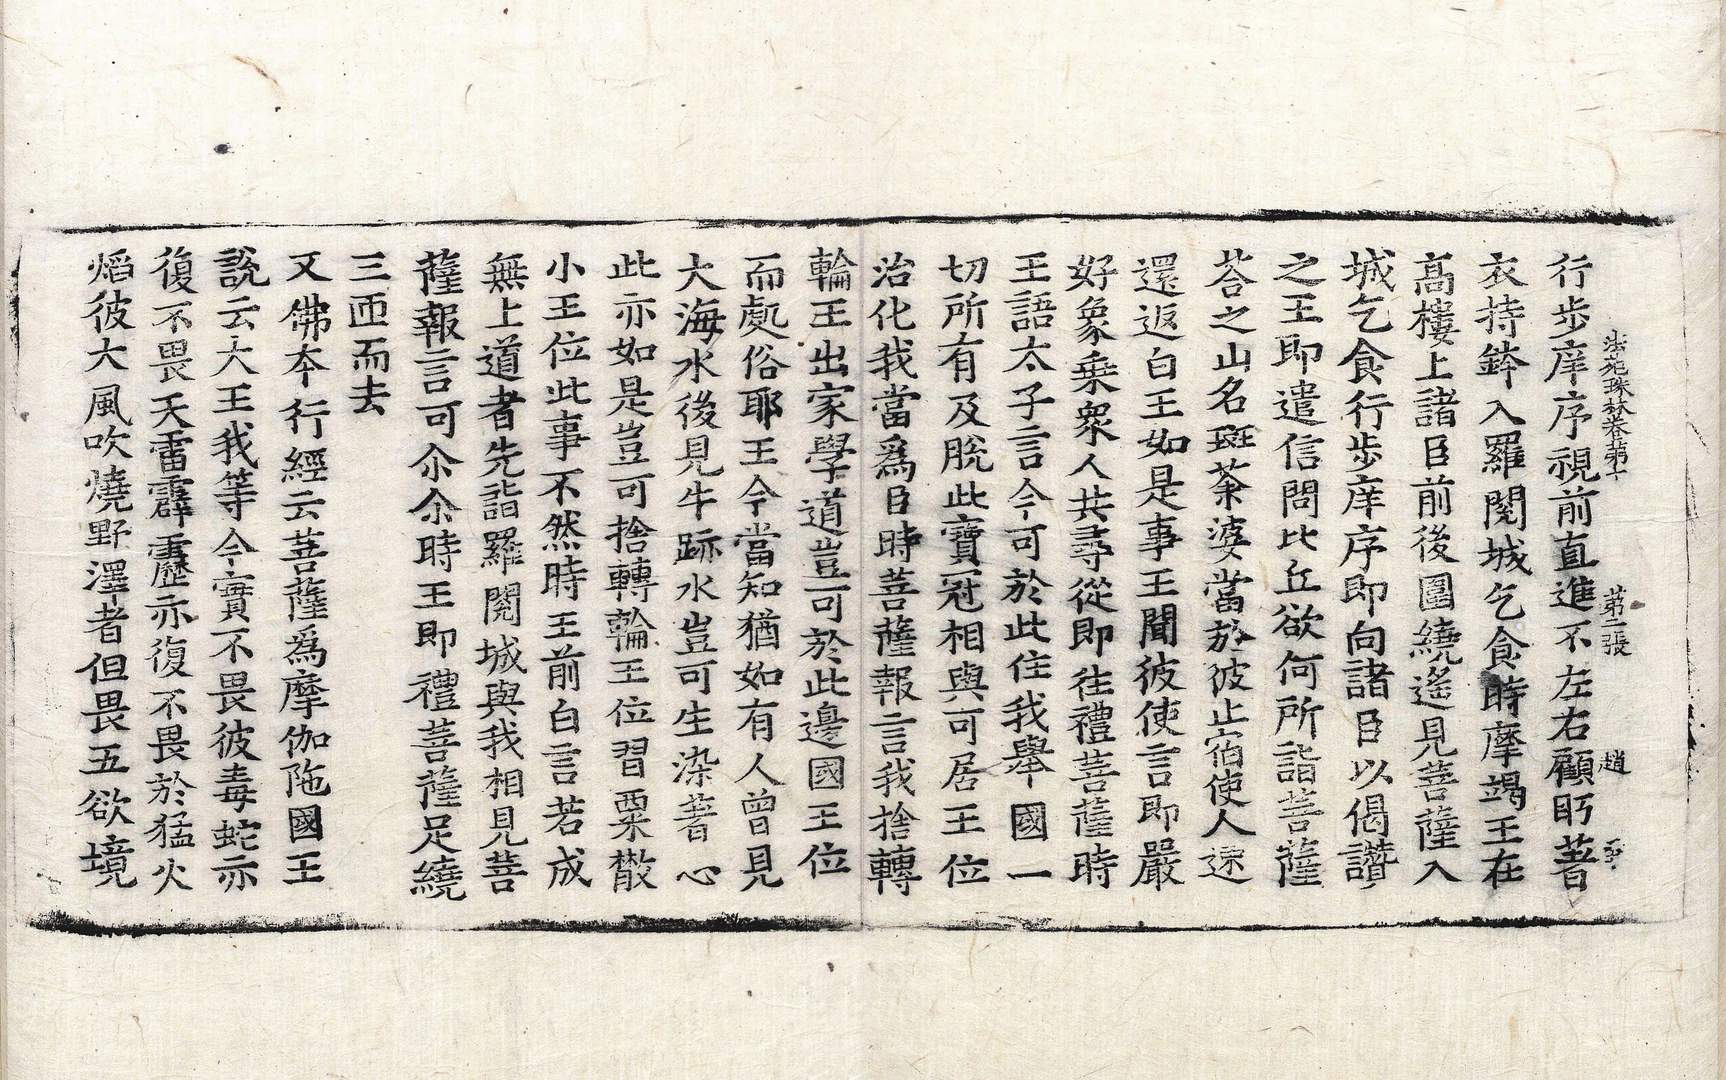 法苑珠林卷第十　第二張　趙
行步庠序視前直進不左右顧眄著
衣持鉢入羅閱城乞食時摩竭王在
高樓上諸臣前後圍繞遙見菩薩入
城乞食行步庠序即向諸臣以偈讚
之王即遣信問比丘欲何所詣菩薩
荅之山名斑荼婆當於彼止宿使人速
還返白王如是事王聞彼使言即嚴
好象乗衆人共尋從即往禮菩薩時
王語太子言今可於此住我舉國一
切所有及脫此寶冠相與可居王位
治化我當爲臣時菩薩報言我捨轉
輪王出家學道豈可於此邊國王位
而處俗耶王今當知猶如有人曾見
大海水後見牛跡水豈可生染著心
此亦如是豈可捨轉輪王位習粟㪚
小王位此事不然時王前白言若成
無上道者先詣羅閱城與我相見菩
薩報言可尒尒時王即禮菩薩足繞
三匝而去
又佛本行經云菩薩爲摩伽陁國王
說云大王我等今實不畏彼毒蛇亦
復不畏天雷霹靂亦復不畏於猛火
焰彼大風吹燒野澤者但畏五欲境